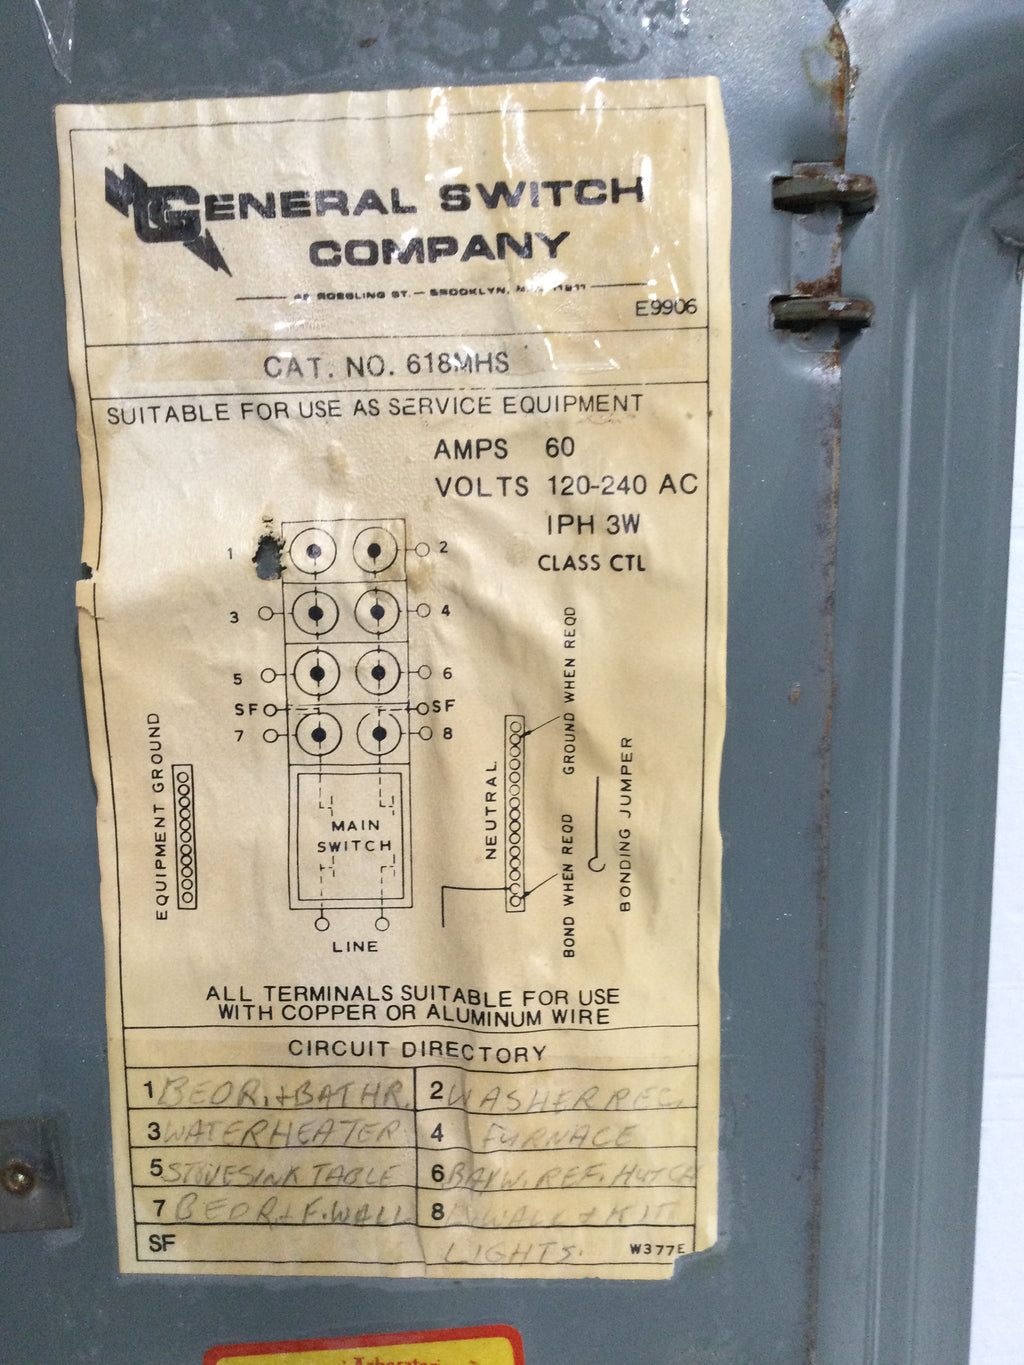 GENERAL SWITCH
COMPANY
ROEBLING ST. — BROOKLYN,
E9906
CAT. NO. 618MHS
SUITABLE FOR USE AS SERVICE EQUIPMENT
AMPS 60
VOLTS 120-240 AC
IPH 3W
CLASS CTL
1 2
3 4
5 6
SF SF
7 8
MAIN
SWITCH
LINE
EQUIPMENT GROUND
NEUTRAL
GROUND WHEN REQD
BOND WHEN REQD
BONDING JUMPER
ALL TERMINALS SUITABLE FOR USE
WITH COPPER OR ALUMINUM WIRE
CIRCUIT DIRECTORY
1 BEDR. + BATHR. 2 WASHER REC
3 WATERHEATER 4 FURNACE
5 STOVE SINK TABLE 6 BAYW. REF. HUTCH
7 BEDR + F. WALL 8 WALL + KIT
SF LIGHTS. W377E